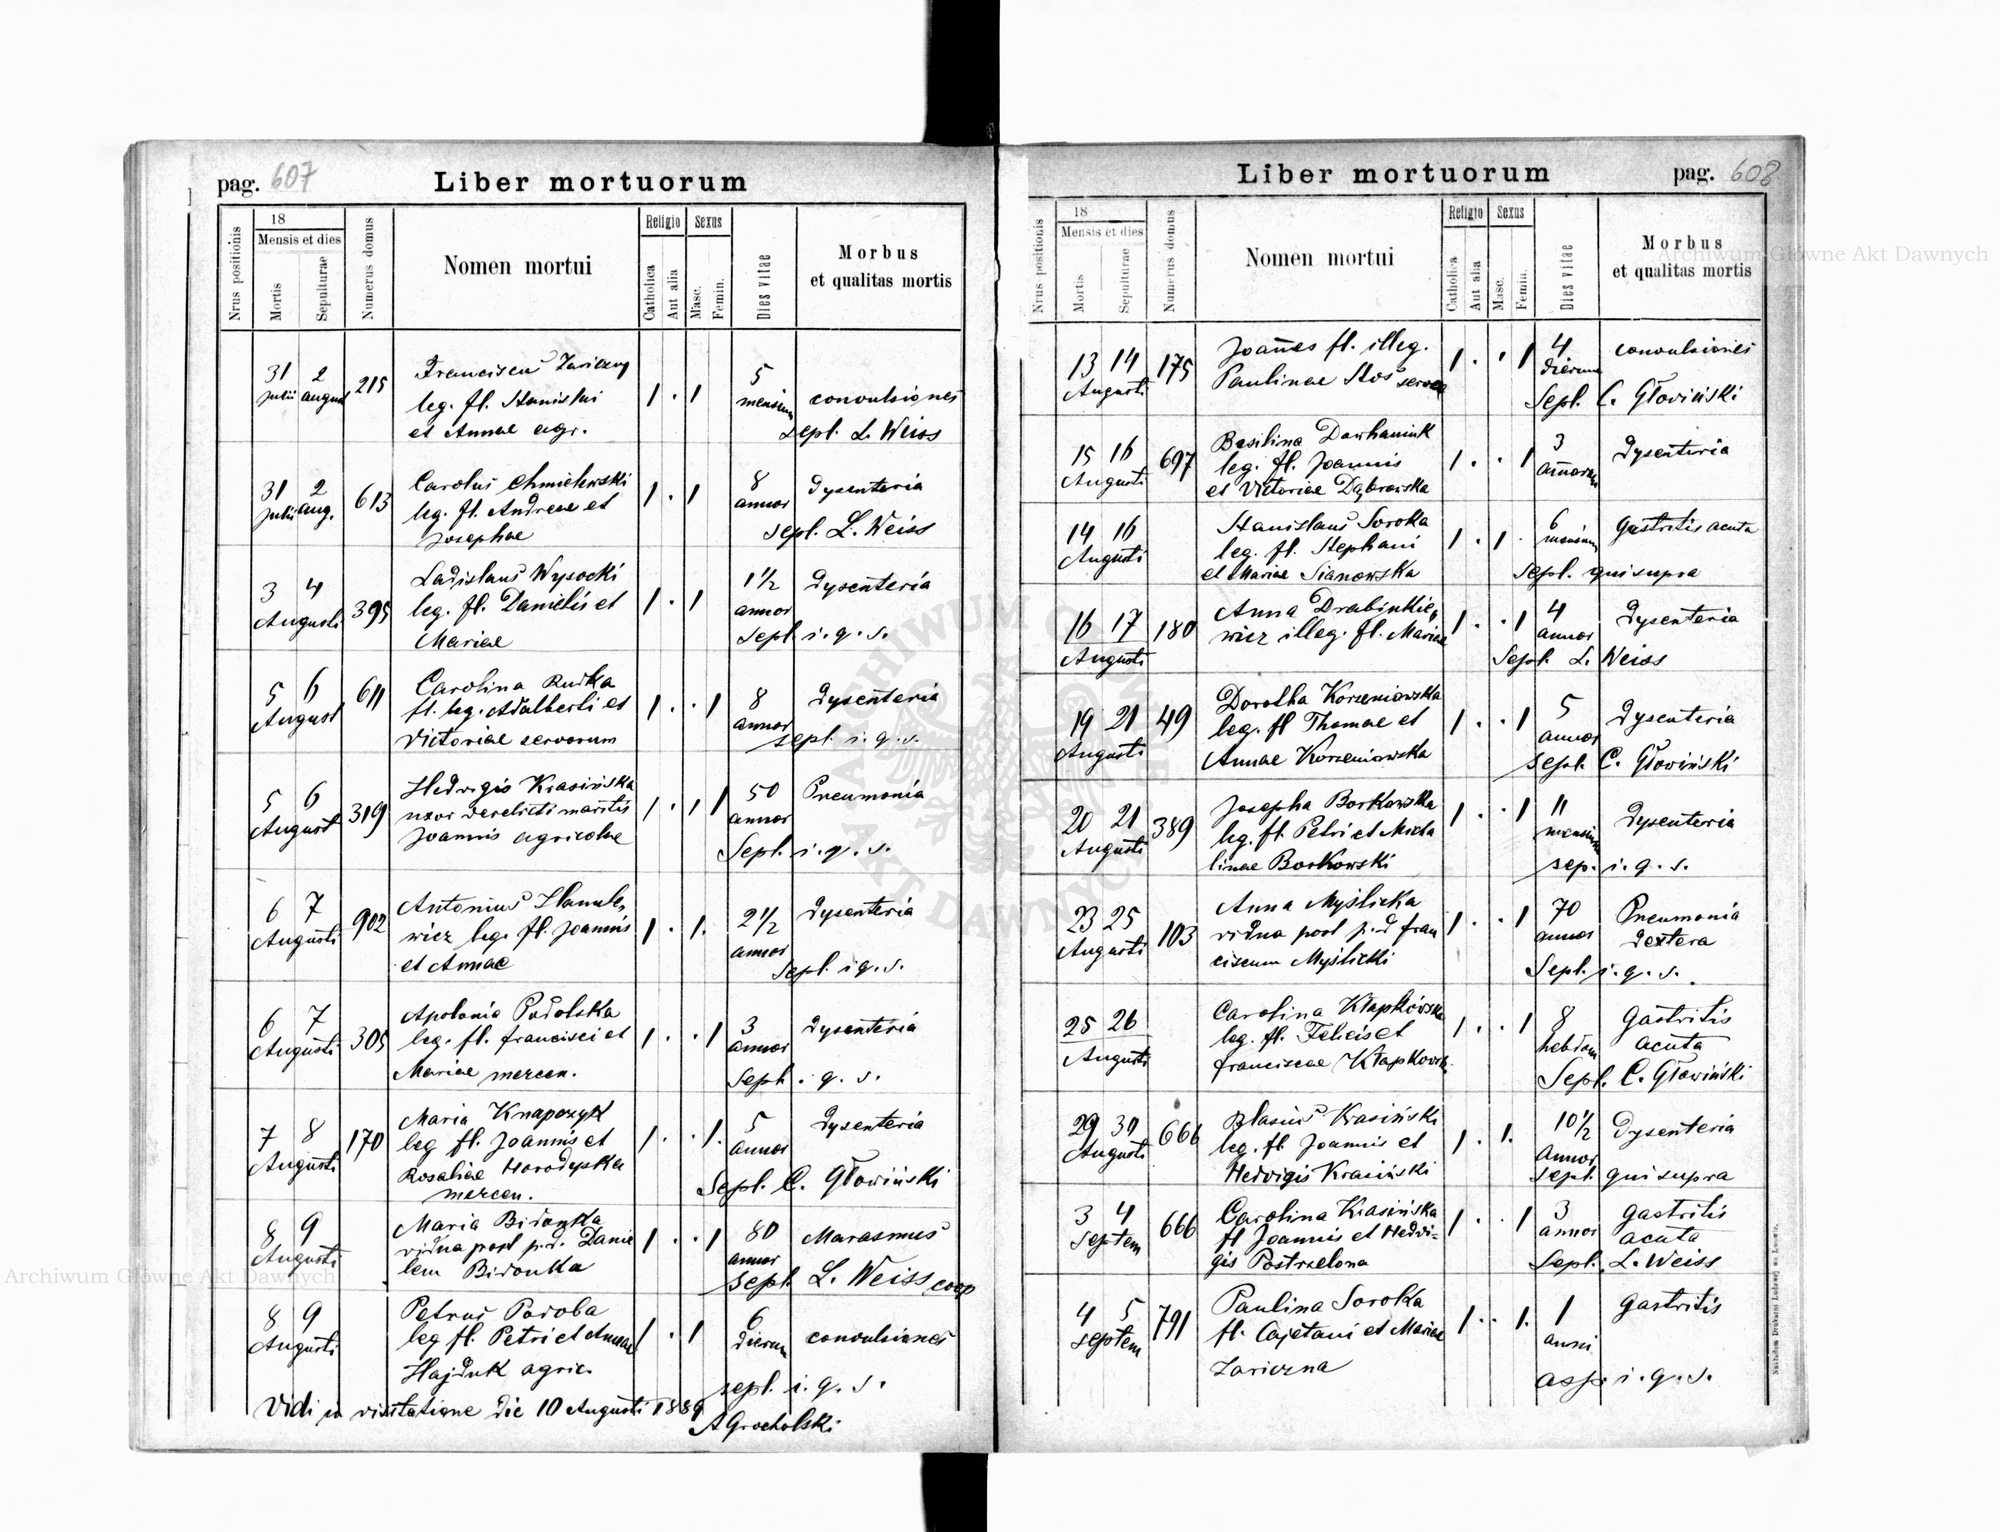 pag. 607 Liber mortuorum
Nrus positionis
18
Mensis et dies
Mortis
Sepulturae
Numerus domus
Nomen mortui
Religio
Catholica
Aut alia
Sexus
Masc.
Femin.
Dies vitae
Morbus
et qualitas mortis
31 2 215 Franciscus
julii august leg. fl. Stanislai 1 . 1 5 mensium convulsiones
et Annae agr. sepl. L. Weiss
31 2 613 Carolus Chmielewski 1 . 1 8 Dysenteria
julii aug. leg. fl. Andreae et annor
Josephae sepl. L. Weiss
3 4 395 Ladislaus Wysocki 1 . 1 1½ Dysenteria
Augusti leg. fl. Danielis et annor
Mariae sepl i. q. s.
5 6 611 Carolina Rudka 1 . . 1 8 Dysenteria
August fl. leg. Adalberti et annor
Victoriae servorum sepl. i. q. s.
5 6 319 Hedvigis Krasińska 1 . 1 1 50 Pneumonia
August uxor derelicti maritis annor
Joannis agricolae Sepl. i. q. s.
6 7 902 Antonius 1 . 1. 2½ Dysenteria
Augusti wicz leg. fl. Joannis annor
et Annae Sepl. i q. s.
6 7 305 Apolonia Podolska 1 . . 1 3 Dysenteria
Augusti leg. fl. Francisci et annor
Mariae mercen. Sepl i. q. s.
7 8 170 Maria Knapczyk 1 . . 1. 5 Dysenteria
Augusti leg fl. Joannis et annor
Rosaliae Horodyska Sepl. C. Głowiński
mercen.
8 9 Maria Bidonka 1 . . 1 80 Marasmus
Augusti vidua post p.d. Danie annor
lem Bidonka sepl L. Weiss coop
8 9 Petrus Poroba 1 . 1 6 convulsiones
Augusti leg fl. Petri et Annae dierum
Hajduk agric. sepl. i. q. s.
Vidi in visitatione die 10 Augusti 1889
A Grocholski
Liber mortuorum pag. 608
Nrus positionis
18
Mensis et dies
Mortis
Sepulturae
Numerus domus
Nomen mortui
Religio
Catholica
Aut alia
Sexus
Masc.
Femin.
Dies vitae
Morbus
et qualitas mortis
13 14 175 Joannes fl. illeg. 1 . ' 1 4 convulsiones
Augusti Paulinae Stos servae dierum
Sepl. C. Głowiński
15 16 697 Basilina Dowhaniuk 1 . . 1 3 Dysenteria
Augusti leg. fl. Joannis annorum
et Victoriae Dąbrowska
14 16 Stanislaus Soroka 1 . 1 . 6 Gastritis acuta
Augusti leg. fl. Stephani mensium
et Mariae Sianowska Sepl. qui supra
16 17 180 Anna Drabinkie, 1 . . 1 4 Dysenteria
Augusti wicz illeg. fl. Mariae annor
Sepl L. Weiss
19 21 49 Dorotha Korzeniowska 1 . . 1 5 Dysenteria
Augusti leg. fl Thomae et annor
Annae Korzeniowska sepl. C. Głowiński
20 21 389 Josepha Borkowska 1 . . 1 11 Dysenteria
Augusti leg. fl. Petri et Micha mensium
linae Borkowski sep. i. q. s.
23 25 103 Anna Myślicka 1 . . 1 70 Pneumonia
Augusti vidua post p.d Fran annor dextera
ciscum Myślicki Sepl. i. q. s.
25 26 Carolina Kłapkowska 1 . . 1 8 Gastritis
Augusti leg. fl. Felicis et hebdom acuta
Franciscae Kłapkowsk. Sepl. C. Głowiński
29 30 666 Blasius Krasiński 1 . 1. 10½ Dysenteria
Augusti leg. fl. Joannis et annor
Hedvigis Krasiński sepl. qui supra
3 4 666 Carolina Krasińska 1 . . 1 3 Gastritis
Septem fl Joannis et Hedvi- annor acuta
gis Postrzelona Sepl. L. Weiss
4 5 791 Paulina Soroka 1 . . 1. 1 Gastritis
Septem fl. Cajetani et Mariae anni
Zariczna asp. i. q. s.
Nakładem Drukarni Ludowej we Lwowie.
Archiwum Główne Akt Dawnych
Archiwum Główne Akt Dawnych
ARCHIWUM GŁÓWNE AKT DAWNYCH